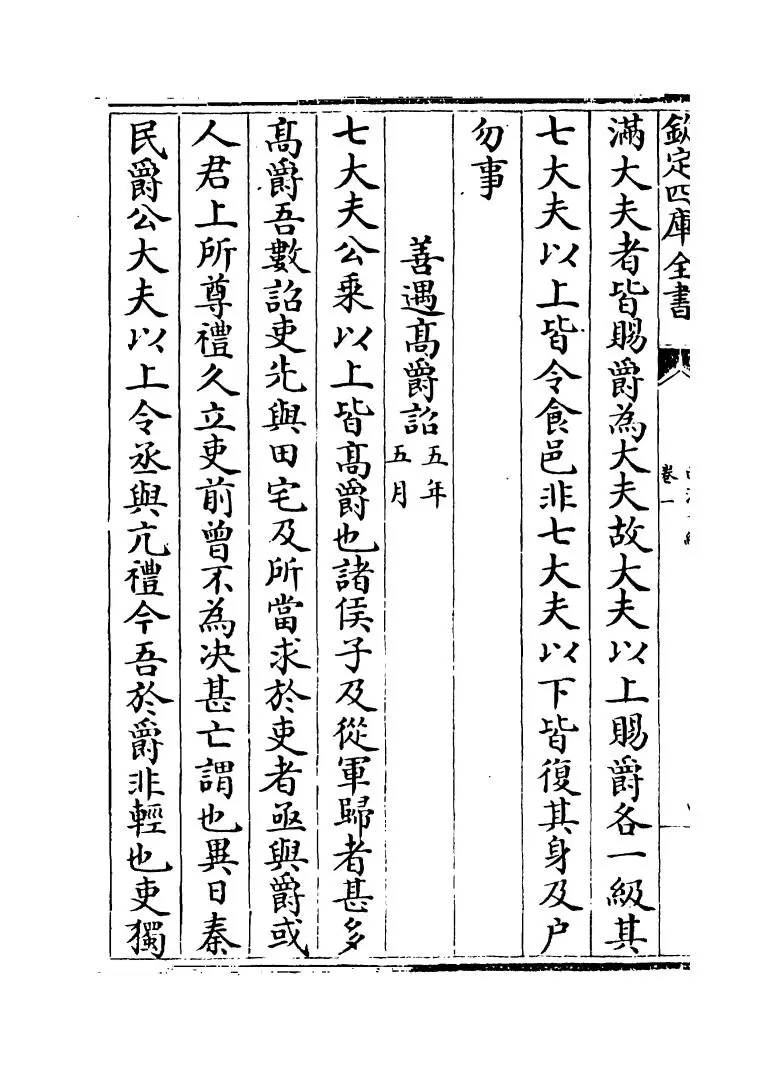 欽定四庫全書
卷一
滿大夫者皆賜爵為大夫故大夫以上賜爵各一級其
七大夫以上皆令食邑非七大夫以下皆復其身及户
勿事
善遇髙爵詔五年五月
七大夫公乗以上皆髙爵也諸侯子及從軍歸者甚多
髙爵吾數詔吏先與田宅及所當求於吏者亟與爵或
人君上所尊禮久立吏前曾不為決甚亡謂也異日秦
民爵公大夫以上令丞與亢禮今吾於爵非輕也吏獨